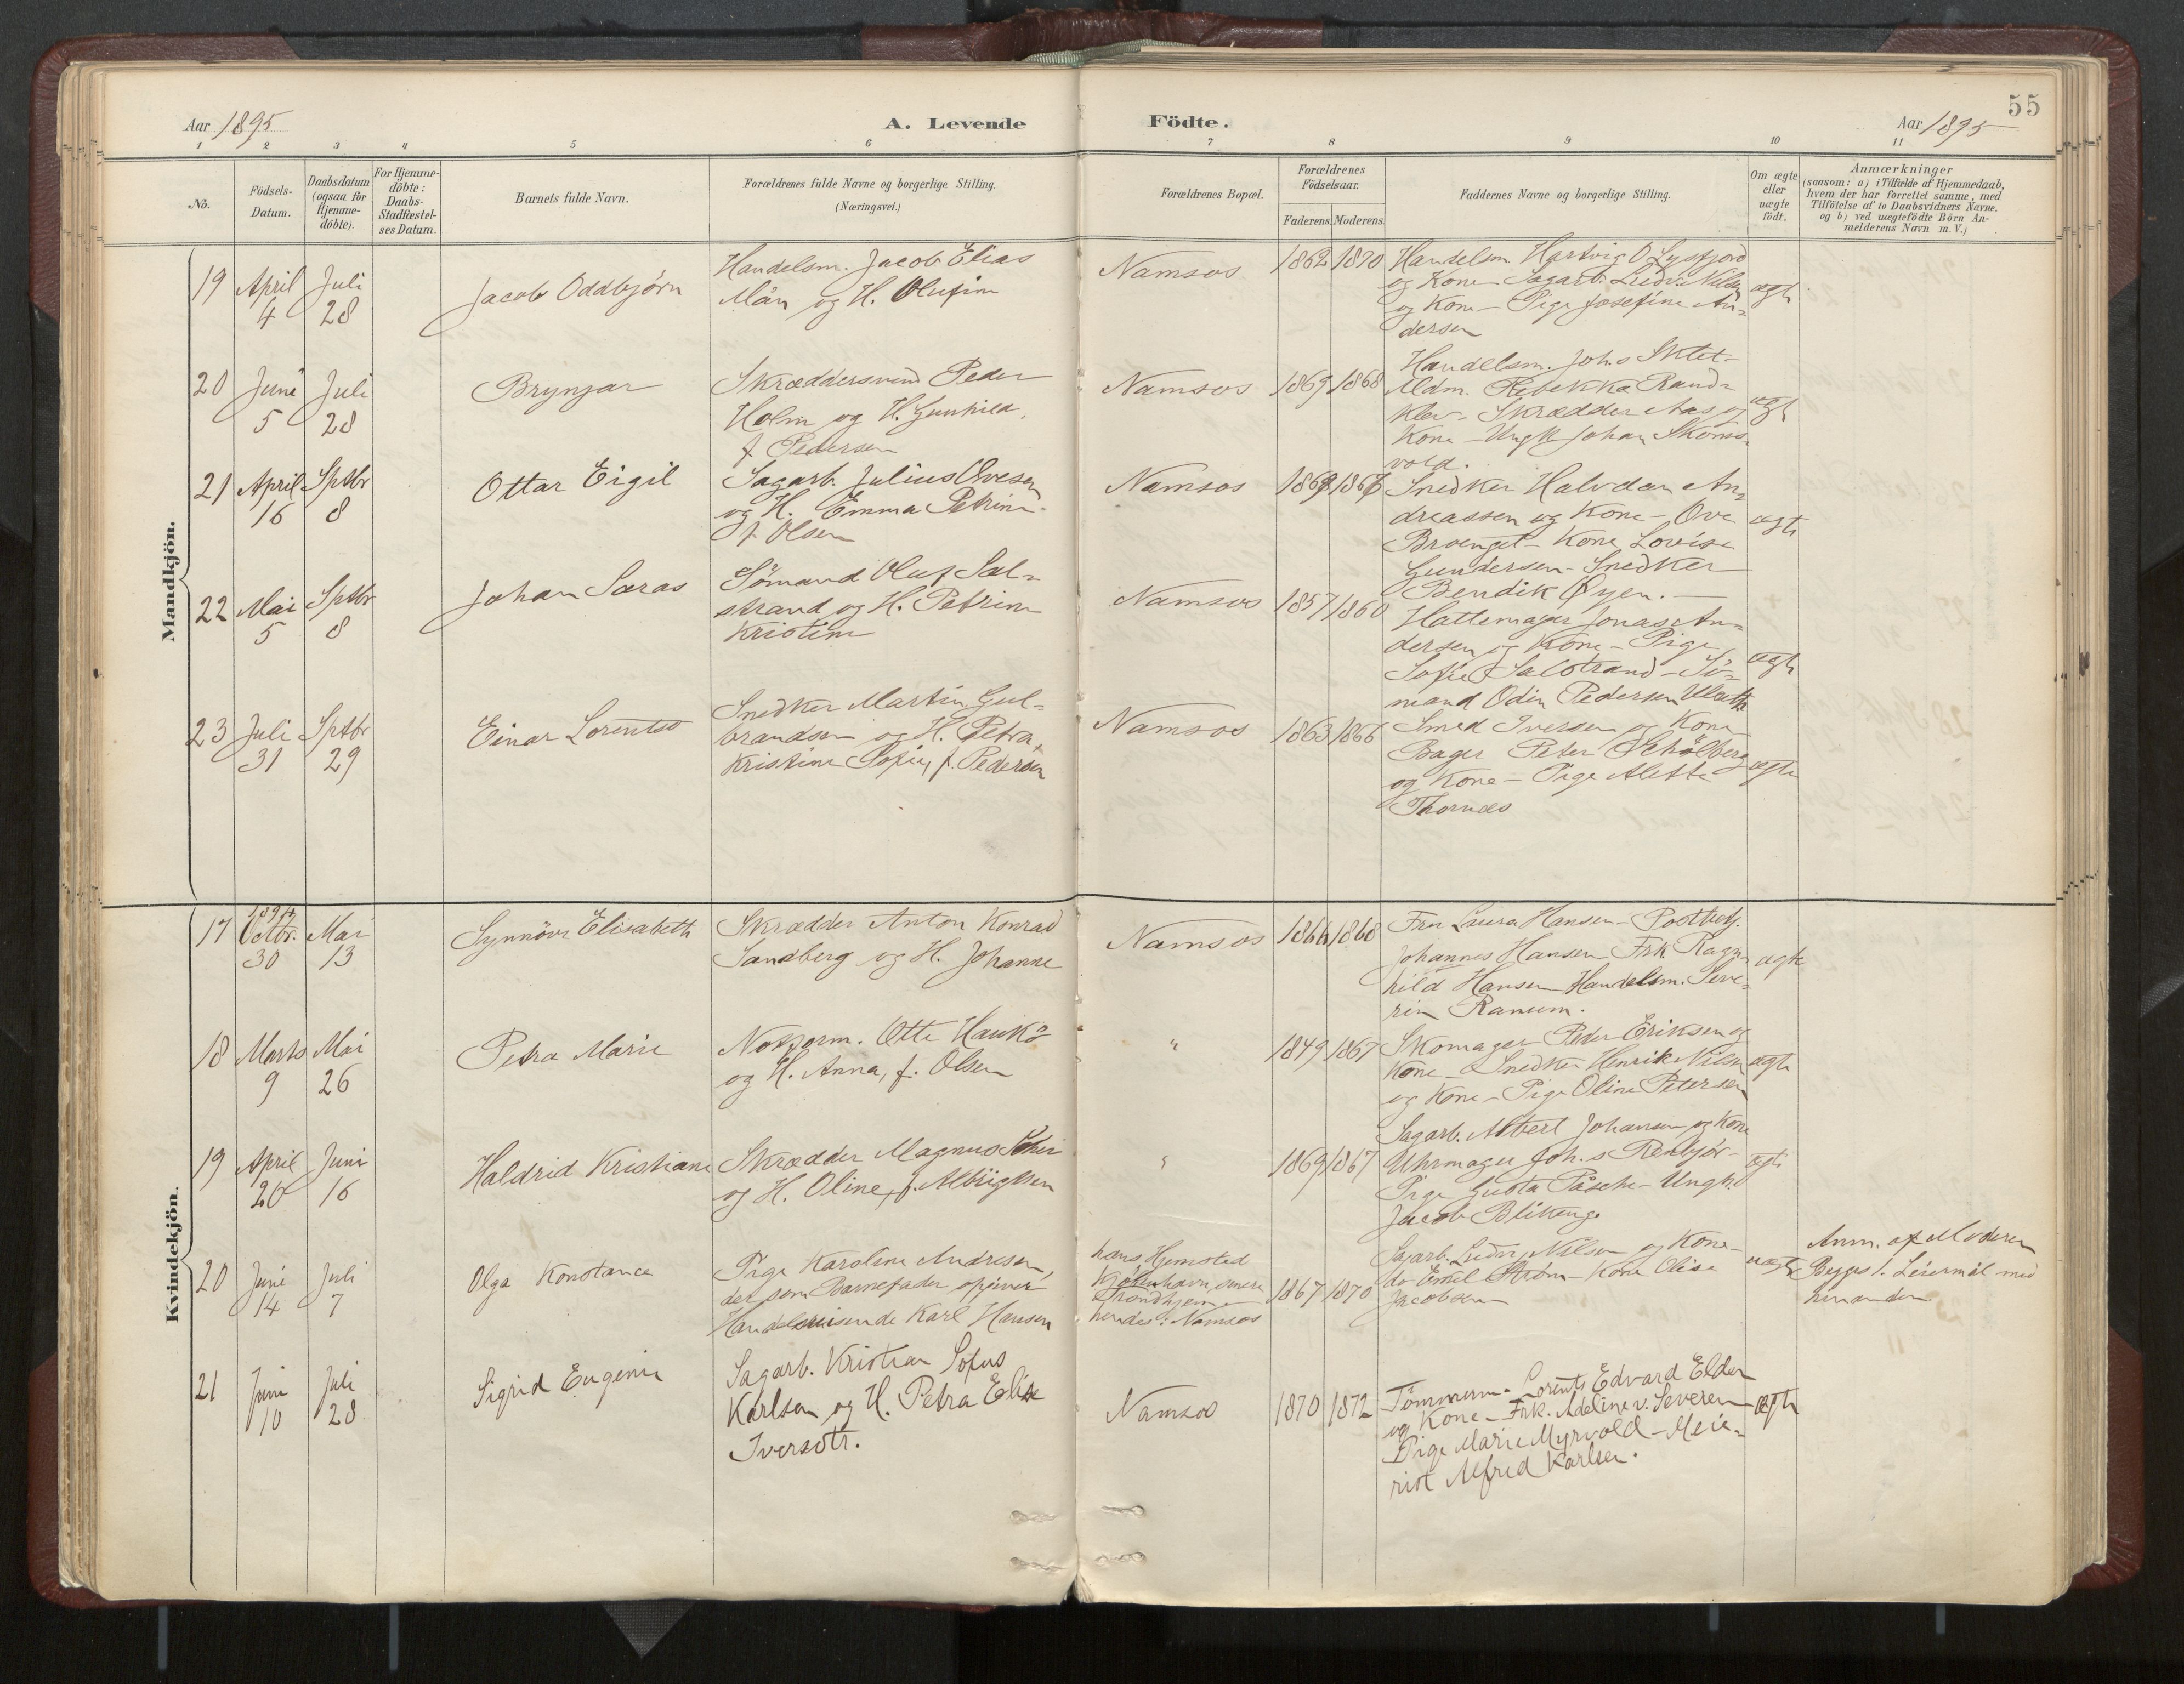 55
Aar 1895
A. Levende
Födte.
Aar 1895
1 2 3 4 5 6 7 8 9 10 11
No.
Födsels-
Datum.
Daabsdatum
(ogsaa for
Hjemme-
döbte).
For Hjemme-
döbte:
Daabs-
Stadfæstel-
ses Datum.
Barnets fulde Navn.
Forældrenes fulde Navne og borgerlige Stilling.
(Næringsvei.)
Forældrenes Bopæl.
Forældrenes
Födselsaar.
Faderens. Moderens.
Faddernes Navne og borgerlige Stilling.
Om ægte
eller
uægte
födt.
Anmærkninger
(saasom: a) i Tilfælde af Hjemmedaab,
hvem der har forrettet samme, med
Tilföielse af to Daabsvidners Navne,
og b) ved uægtefödte Börn An-
melderens Navn m.V.)
Mandkjön.
19 April 4 Juli 28
Jacob Oddbjörn
Handelsm. Jacob Elias
Mån og H. Olufine
Namsos
1862 1870
Handelsm Hartvig O Lysfjord
og Kone - Sagarb. Ludv. Nilsen
og Kone - Pige Josefine An=
dersen
ægte
20 Juni 5 Juli 28
Brynjar
Skræddersvend Peder
Holm og H. Gunhild,
f. Pedersen
Namsos
1869 1868
Handelsm. Johs Sklet-
Mdm. Rebekka Rand=
klev - Skrædder Aas og
Kone - Ungk Johan Skoms=
vold.
ægt
21 April 16 Sptbr 8
Ottar Eigil
Sagarb. Julius Ovesen
og H. Emma Petrine
f. Olsen
Namsos
Snedker Halvdan An=
dreassen og Kone - Ove
Brvenget - Kone Lovise
Gundersen - Snedker
Bendik Øyen. -
ægte
22 Mai 5 Sptbr 8
Johan Saras
Sömand Oluf Sal=
strand og H. Petrine
Kristine
Namsos
1857 1860
Hattemager Jonas An=
dersen og Kone - Pige
Sofie Salstrand - Sö=
mand Odin Pedersen
ægte
23 Juli 31 Sptbr 29
Einar Lorentso
Snedker Martin Gul=
brandsen og H. Petra
Kristine Sofie, f. Pedersen
Namsos
1863 1866
Smed Iversen og Kone
Bager Peter Schölberg
og Kone - Pige Aletta
Thornæs
ægte
Kvindekjön.
17 1894 Octbr. 30 Mai 13
Synnöve Elisabeth
Skrædder Anton Konrad
Sandberg og H. Johanne
Namsos
1866 1868
Fru Laura Hansen - Postbef.
Johannes Hansen Frk Ragn=
hild Hansen Handelsm. Seve=
rin Ranum.
ægte
18 Marts 9 Mai 26
Petra Marie
Notform. Otto Haukö
og H. Anna, f. Olsen
"
1849 1867
Skomager Peder Eriksen og
Kone - Snedker Henrik Nilsen
og Kone - Pige Oline Petersen
ægte
19 April 20 Juni 16
Haldrid Kristiane
Skrædder Magnus
og H. Oline, f. Albrigtsen
"
1869 1867
Sagarb. Albert Johansen og Kone
Uhrmager Joh.s Renbjör-
Pige Gusta Påsche - Ungk.
Jacob Blikeng
ægte
20 Juni 14 Juli 7
Olga Konstance
Pige Karoline Andresen,
der som Barnefader opgiver
Handelsreisende Karl Hansen
hans Hjemsted
Kjöbenhavn, senere
Trondhjem -
hendes: Namsos
1867 1870
Sagarb. Ludv. Nilsen og Kone -
do Emil Ström - Kone Olise
Jacobsen
uægte
Anm. af Moderen
Begges 1. Leiermål med
hinanden.
21 Juni 10 Juli 28
Sigrid Eugenie
Sagarb. Kristian Sofus
Karlsen og H. Petra Elise
Iversdtr.
Namsos
1870 1872
Tömmerm. Lorents Edvard Elden
og Kone - Frk. Adeline v. Severen -
Pige Marie Myrvold - Meie=
rist Alfred Karlsen.
ægte